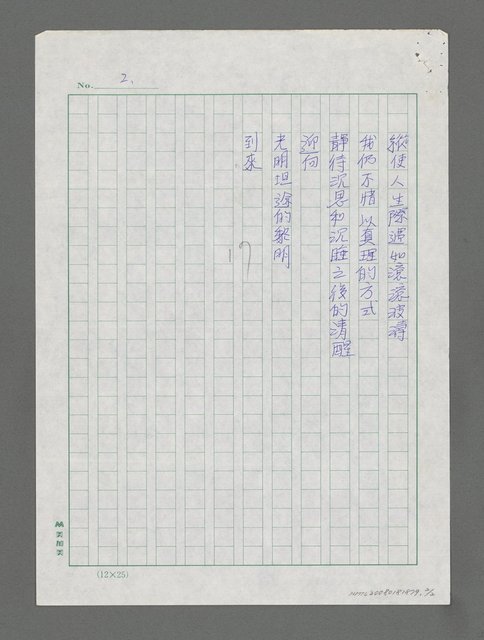 No. 2.
縱使人生際遇如滾滾波濤
我仍不惜以真理的方式
靜待沉思和沉睡之後的清醒
迎向
光明坦途的黎明
到來
17
(12×25)